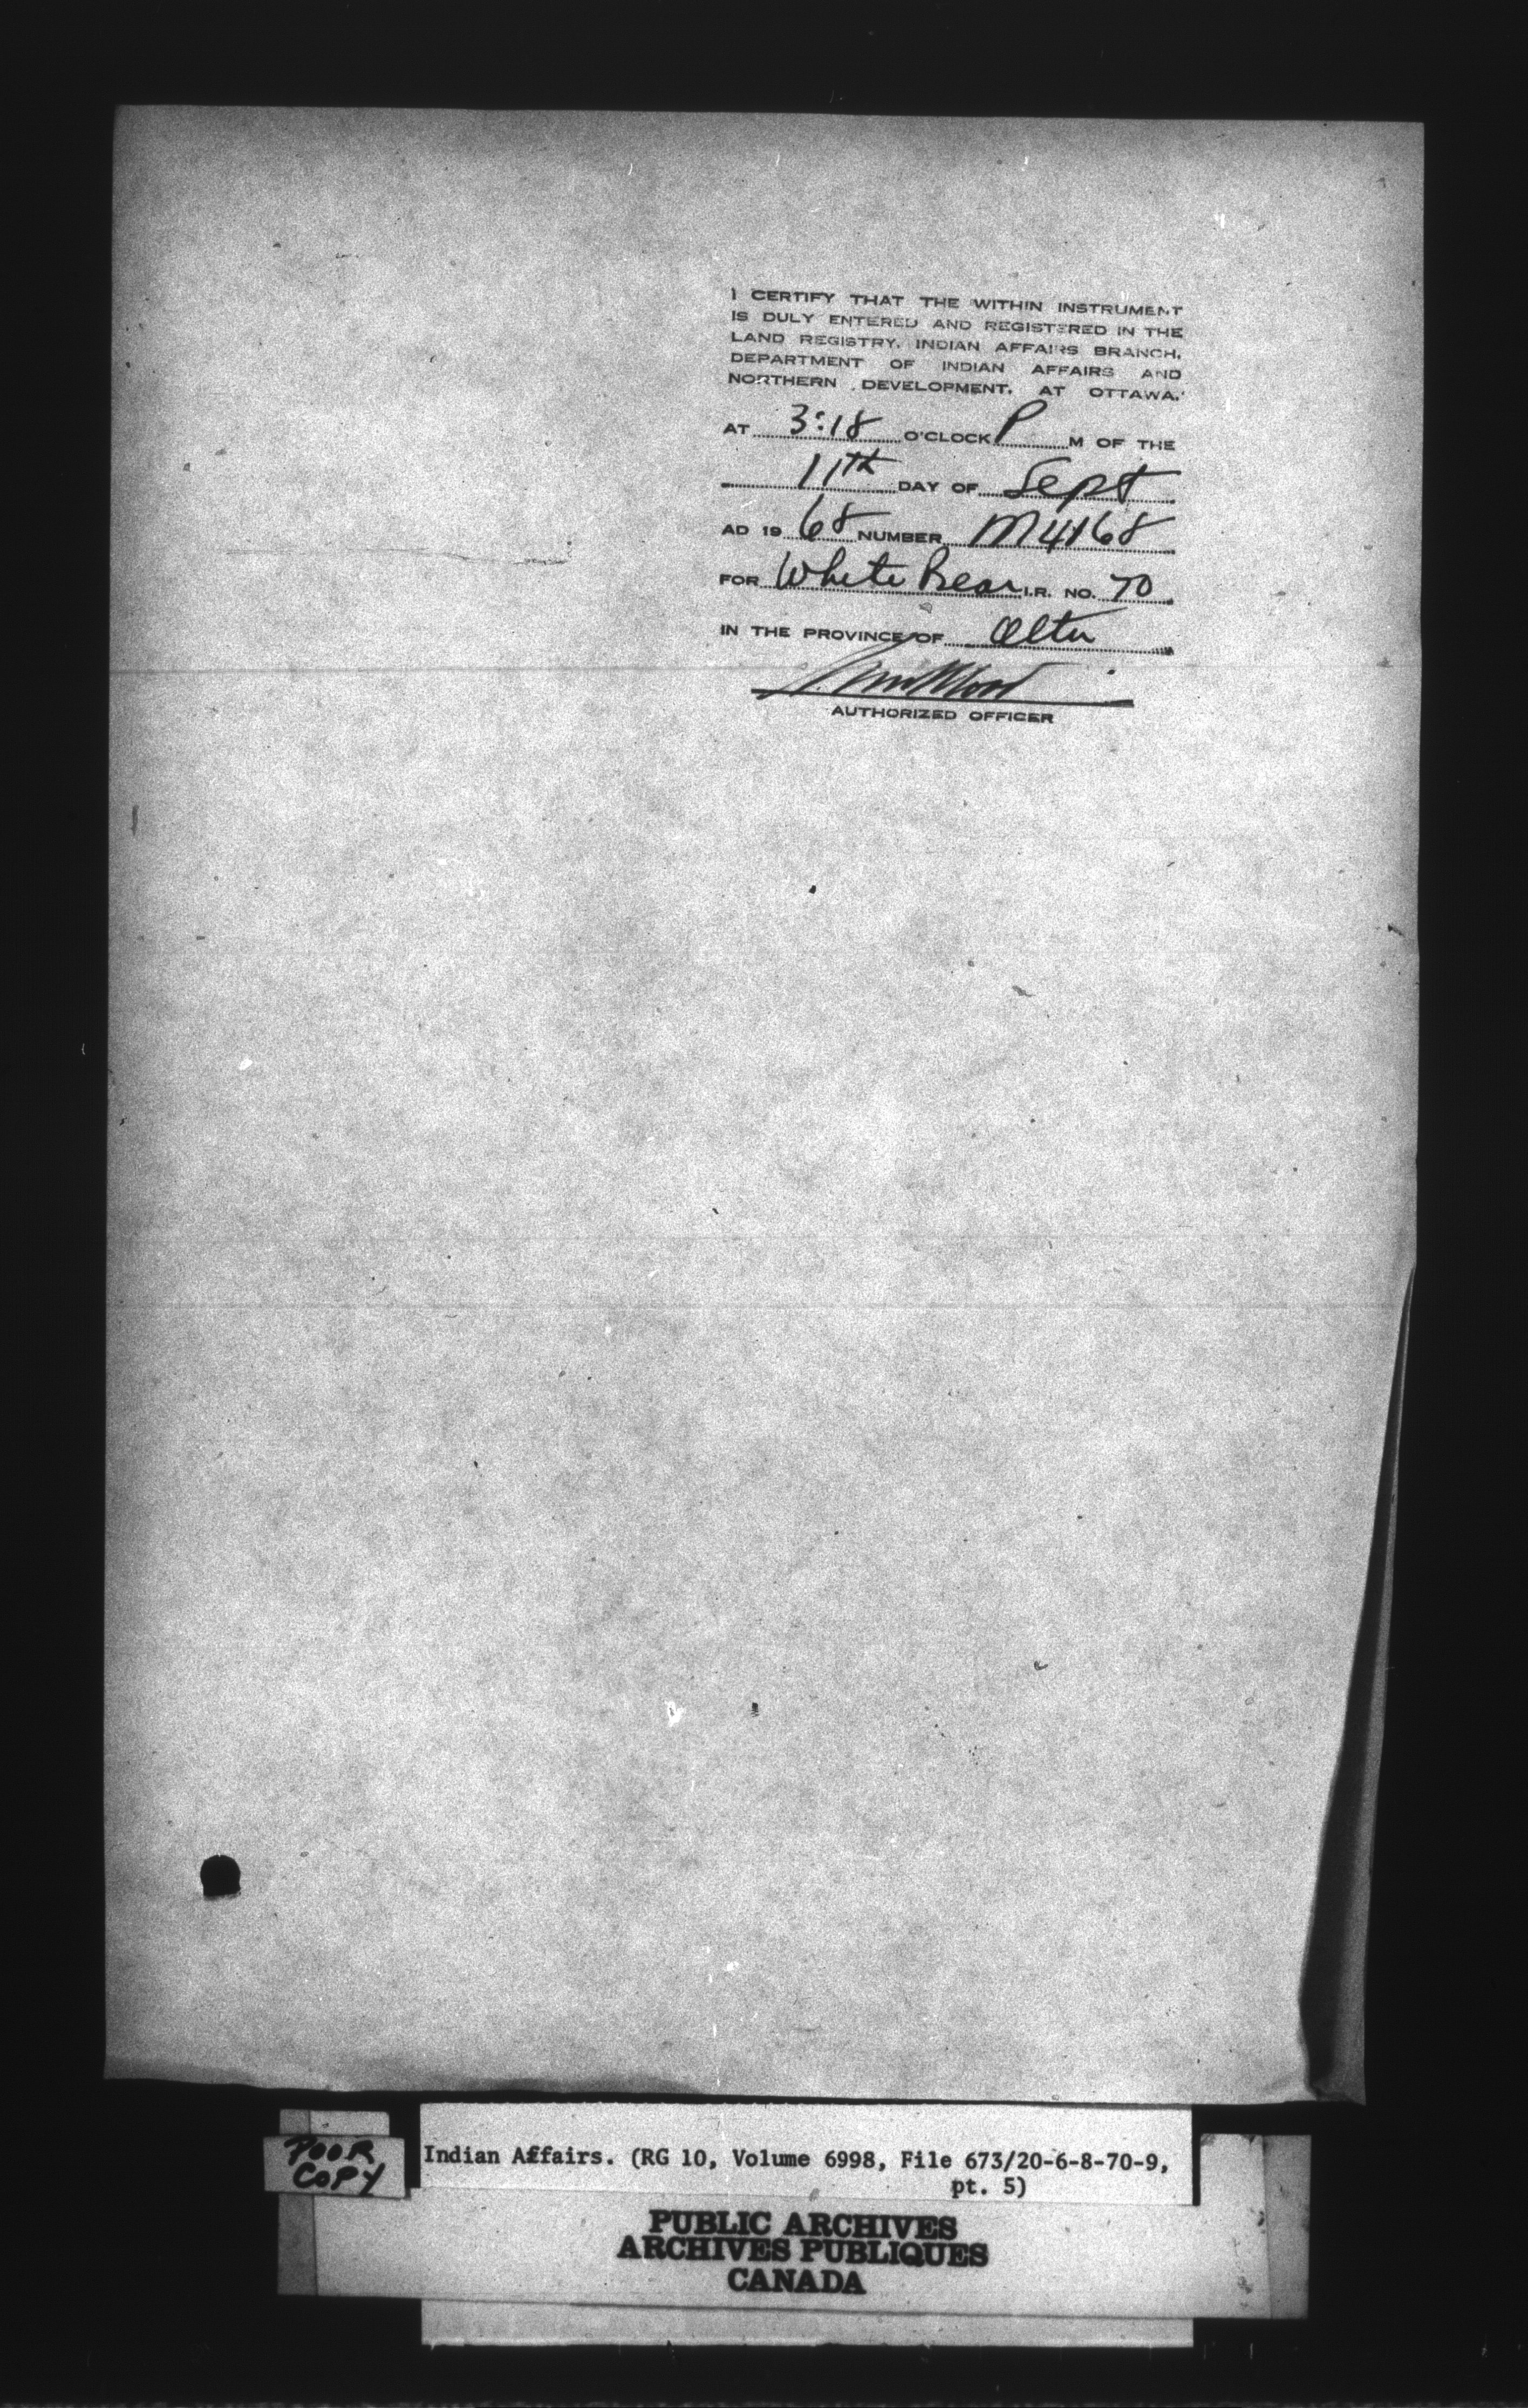 I CERTIFY THAT THE WITHIN INSTRUMENT
IS DULY ENTERED AND REGISTERED IN THE
LAND REGISTRY, INDIAN AFFAIRS BRANCH,
DEPARTMENT OF INDIAN AFFAIRS AND
NORTHERN DEVELOPMENT, AT OTTAWA,
AT 3:18 O'CLOCK P M OF THE
11th DAY OF Sept
AD 19 68 NUMBER M4168
FOR White Bear I.R. NO. 70
IN THE PROVINCE OF
AUTHORIZED OFFICER
POOR
COPY
Indian Affairs. (RG 10, Volume 6998, File 673/20-6-8-70-9,
pt. 5)
PUBLIC ARCHIVES
ARCHIVES PUBLIQUES
CANADA